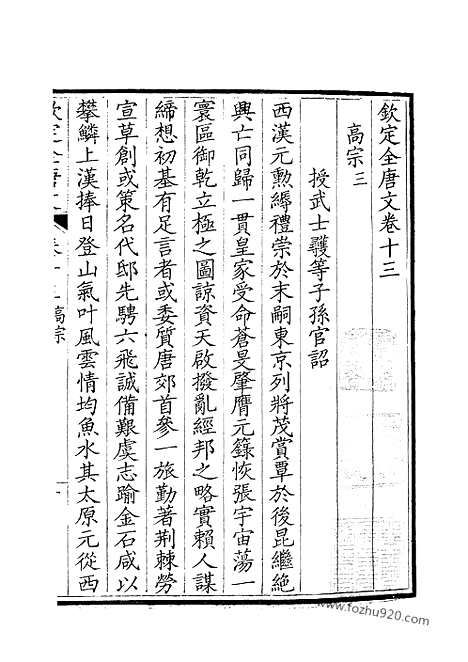 欽定全唐文卷十三
高宗三
授武士彠等子孫官詔
西漢元勳縟禮崇於末嗣東京列將茂賞覃於後昆繼絶
興亡同歸一貫皇家受命蒼旻肇膺元籙恢張宇宙蕩一
寰區御乾立極之圖諒資天啟撥亂經邦之略實賴人謀
締想初基有足言者或委質唐郊首參一旅勤著荆棘勞
宣草創或策名代邸先騁六飛誠備艱虞志踰金石咸以
攀鱗上漢捧日登山氣叶風雲情均魚水其太原元從西
欽定全唐文 卷十三 高宗 一
www.fozhu920.com